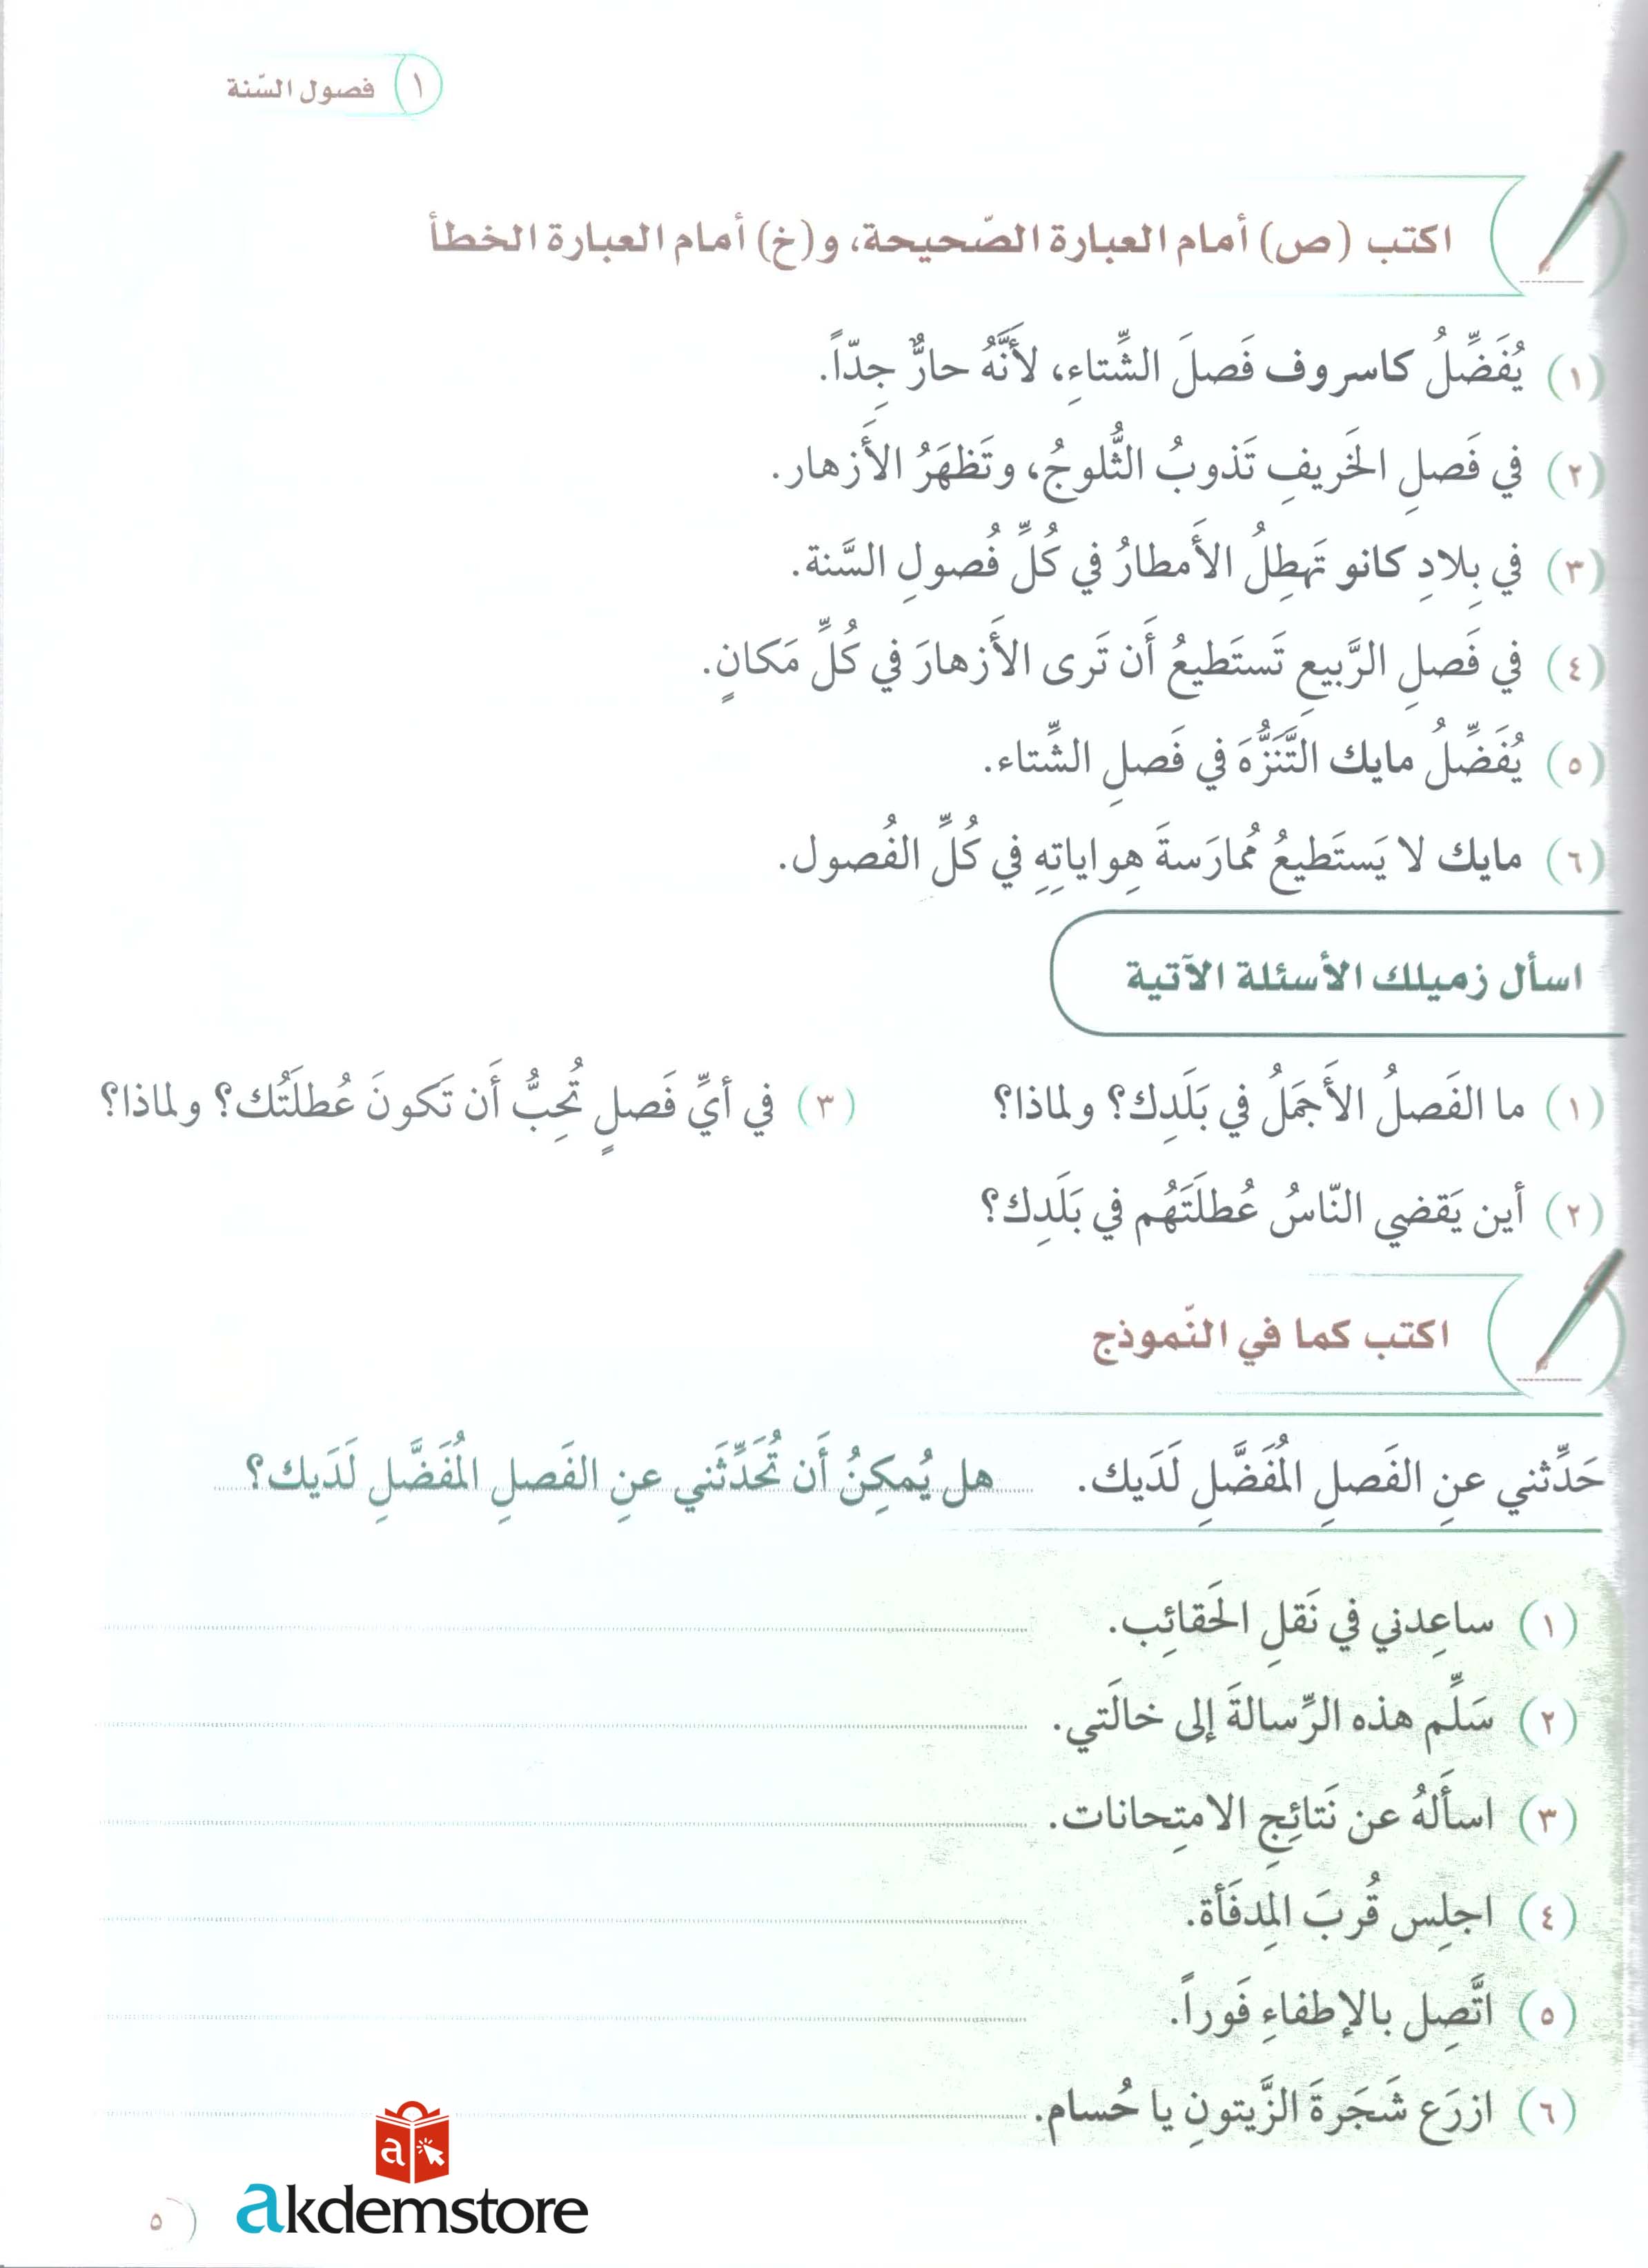 ١ فصول السّنة
اكتب (ص) أمام العبارة الصّحيحة، و(خ) أمام العبارة الخطأ
(١) يُفَضِّلُ كاسروف فَصلَ الشِّتاءِ، لأَنَّهُ حارٌّ جِدّاً.
(٢) في فَصلِ الخَريفِ تَذوبُ الثُّلوجُ، وتَظهَرُ الأَزهار.
(٣) في بِلادِ كانو تَهطِلُ الأَمطارُ في كُلِّ فُصولِ السَّنة.
(٤) في فَصلِ الرَّبيعِ تَستَطيعُ أَن تَرى الأَزهارَ في كُلِّ مَكانٍ.
(٥) يُفَضِّلُ مايك التَّنَزُّهَ في فَصلِ الشِّتاء.
(٦) مايك لا يَستَطيعُ مُمارَسةَ هِواياتِهِ في كُلِّ الفُصول.
اسأل زميلك الأسئلة الآتية
(١) ما الفَصلُ الأَجمَلُ في بَلَدِك؟ ولماذا؟ (٣) في أيِّ فَصلٍ تُحِبُّ أَن تَكونَ عُطلَتُك؟ ولماذا؟
(٢) أين يَقضي النّاسُ عُطلَتَهُم في بَلَدِك؟
اكتب كما في النّموذج
حَدِّثني عنِ الفَصلِ المُفَضَّلِ لَدَيك. هل يُمكِنُ أَن تُحَدِّثَني عنِ الفَصلِ المُفَضَّلِ لَدَيك؟
(١) ساعِدني في نَقلِ الحَقائِب.
(٢) سَلِّم هذه الرِّسالةَ إلى خالَتي.
(٣) اسأَلهُ عن نَتائِجِ الامتِحانات.
(٤) اجلِس قُربَ المِدفَأة.
(٥) اتَّصِل بالإطفاءِ فَوراً.
(٦) ازرَع شَجَرةَ الزَّيتونِ يا حُسام.
a
akdemstore
٥